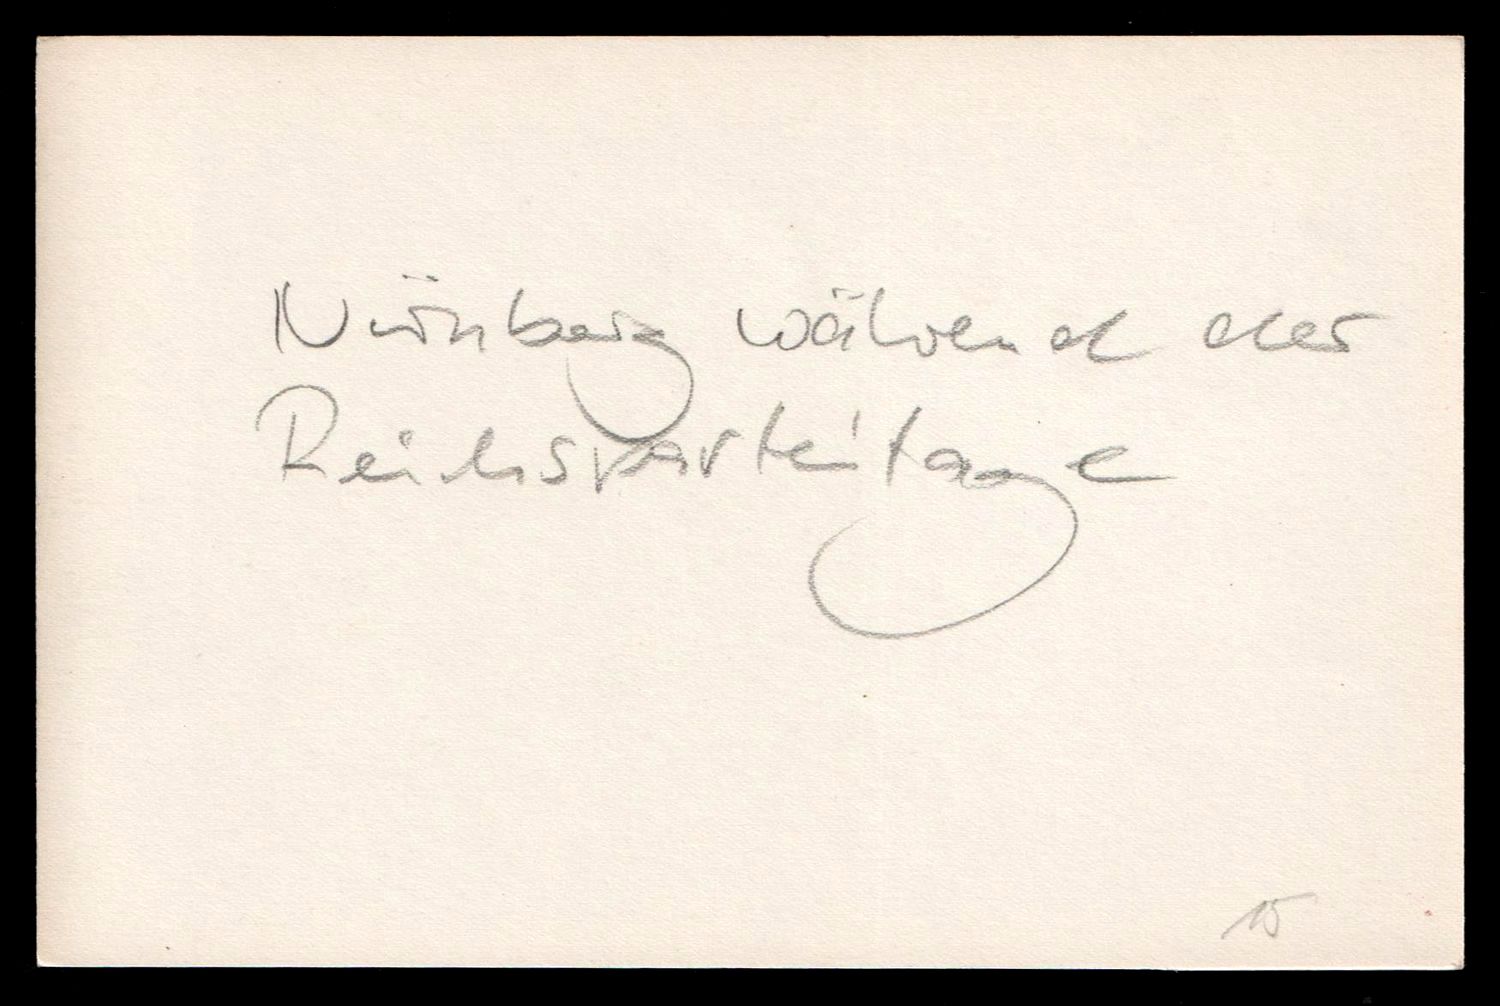 Nürnberg während der
Reichsparteitage
15